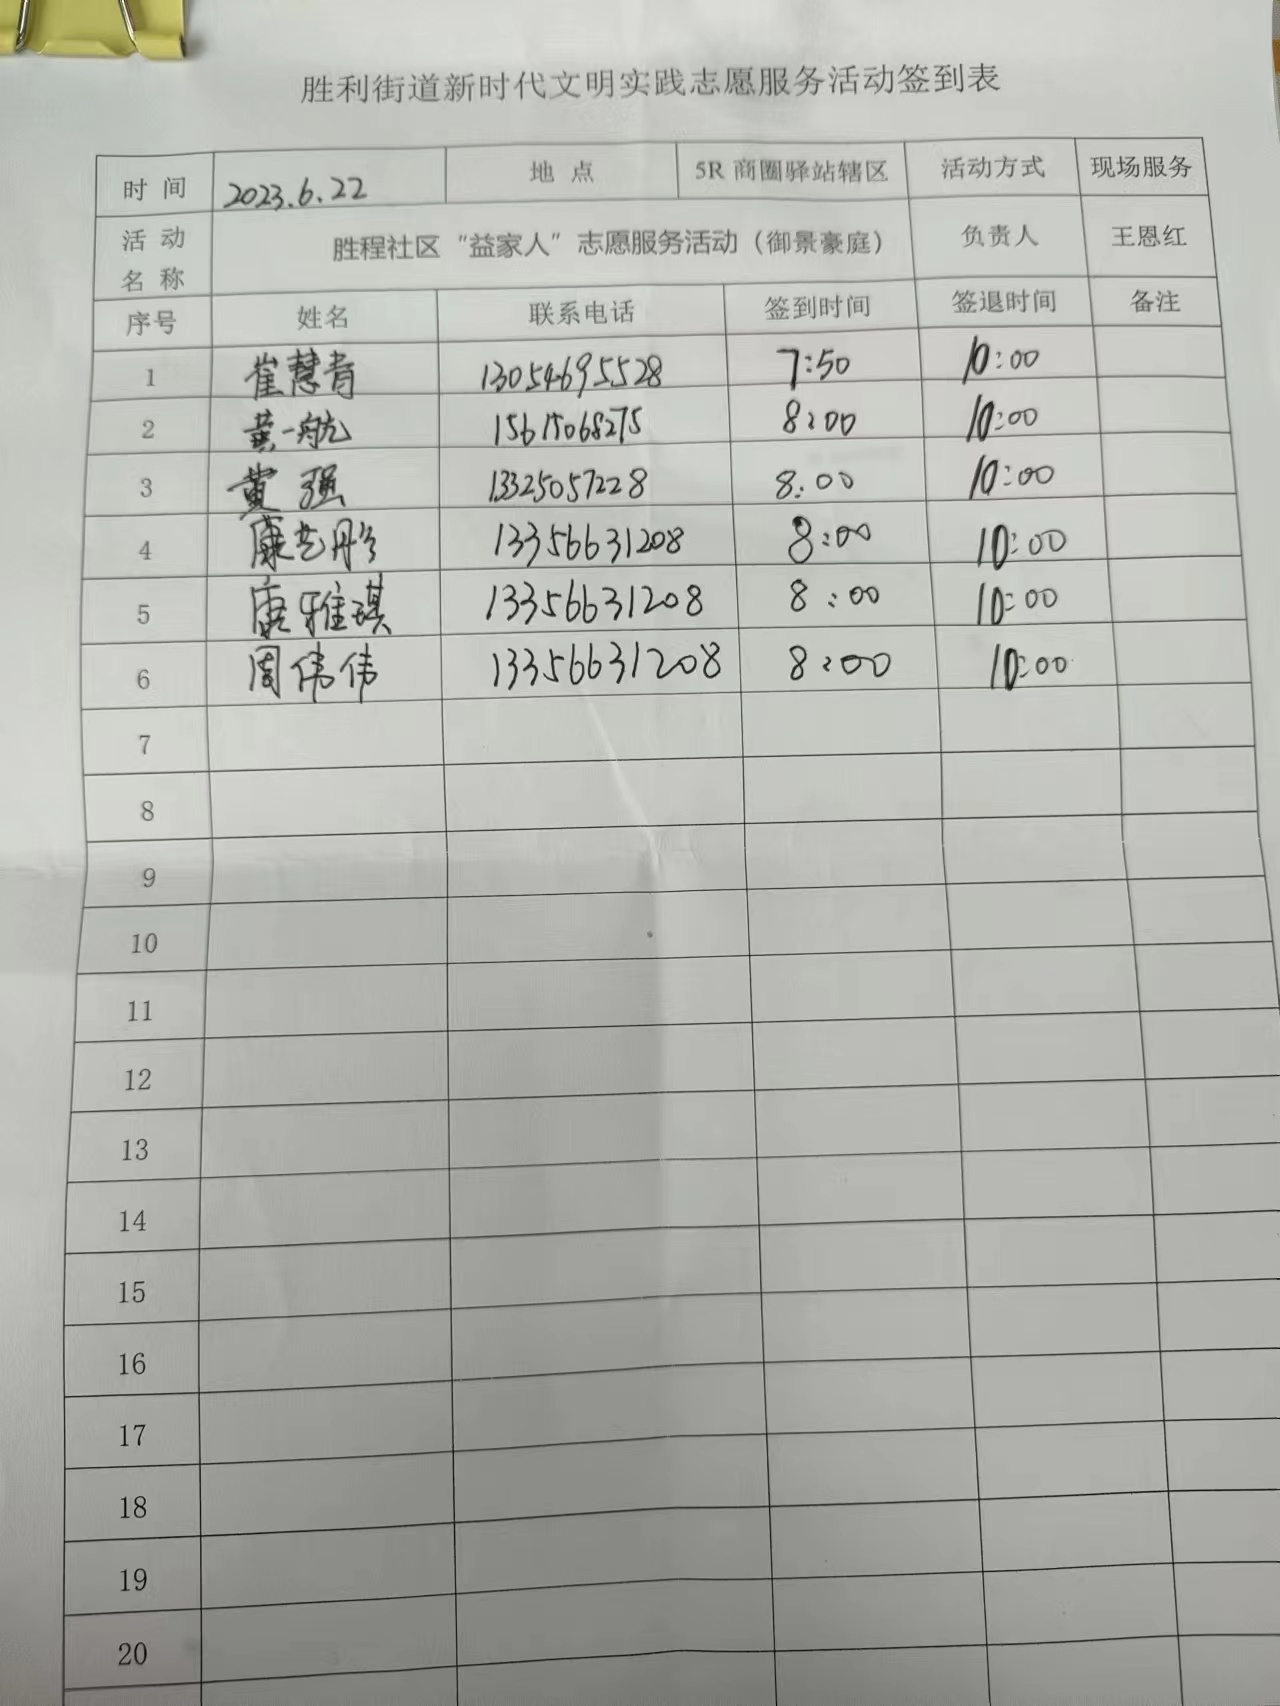 胜利街道新时代文明实践志愿服务活动签到表
时 间 2023.6.22 地 点 5R 商圈驿站辖区 活动方式 现场服务
活 动 名 称 胜程社区“益家人”志愿服务活动（御景豪庭） 负责人 王恩红
序号 姓名 联系电话 签到时间 签退时间 备注
1 崔慧青 13054695528 7:50 10:00
2 黄一航 15615068275 8:00 10:00
3 黄强 13325057228 8:00 10:00
4 康艺彤 13356631208 8:00 10:00
5 康雅琪 13356631208 8:00 10:00
6 周伟伟 13356631208 8:00 10:00
7
8
9
10
11
12
13
14
15
16
17
18
19
20